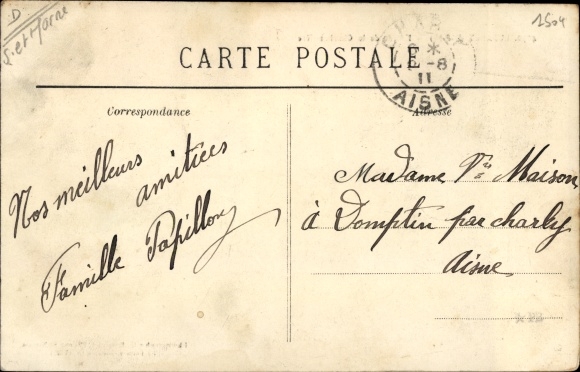 D
S. et Marne
1504
CARTE POSTALE
CHARLY
* -8
11
AISNE
Correspondance
Adresse
Nos meilleurs
amitiées
Famille Papillon
Madame Vve Maison
à Domptin par charly
Aisne